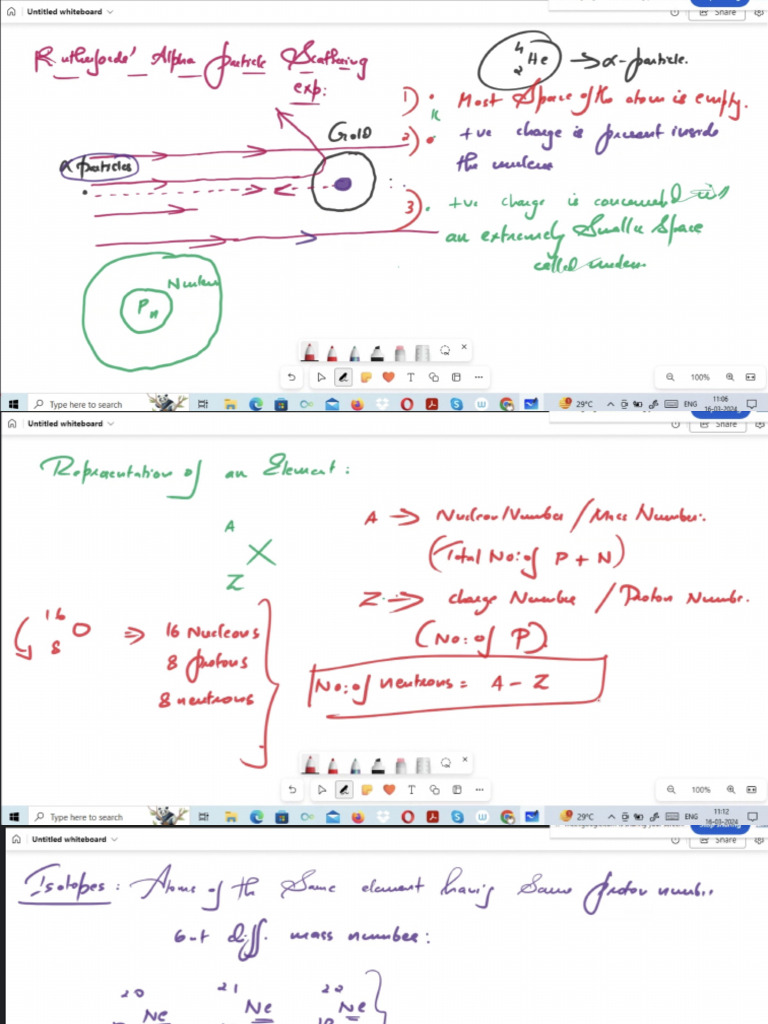 Untitled whiteboard
Share
Rutherfords' Alpha particle Scattering
exp:
4
2 He → α-particle.
1) Most Space of the atom is empty.
2) +ve charge is present inside
the nucleus
3) +ve charge is concentrated
an extremely Smaller Space
called nucleus
Gold
α particles
Nucleus
P n
100%
Type here to search
29°C
ENG
11:06
16-03-2024
Untitled whiteboard
Share
Representation of an Element:
A
X
Z
A → Nucleon Number / Mass Number.
(Total No: of P + N)
Z → charge Number / Proton Number.
(No: of P)
No: of neutrons = A - Z
16
8 O ⇒ 16 Nucleons
8 protons
8 neutrons
100%
Type here to search
29°C
ENG
11:12
16-03-2024
Untitled whiteboard
Share
Isotopes: Atoms of the Same element having Same proton number
but diff. mass number:
20 21 22
Ne Ne Ne